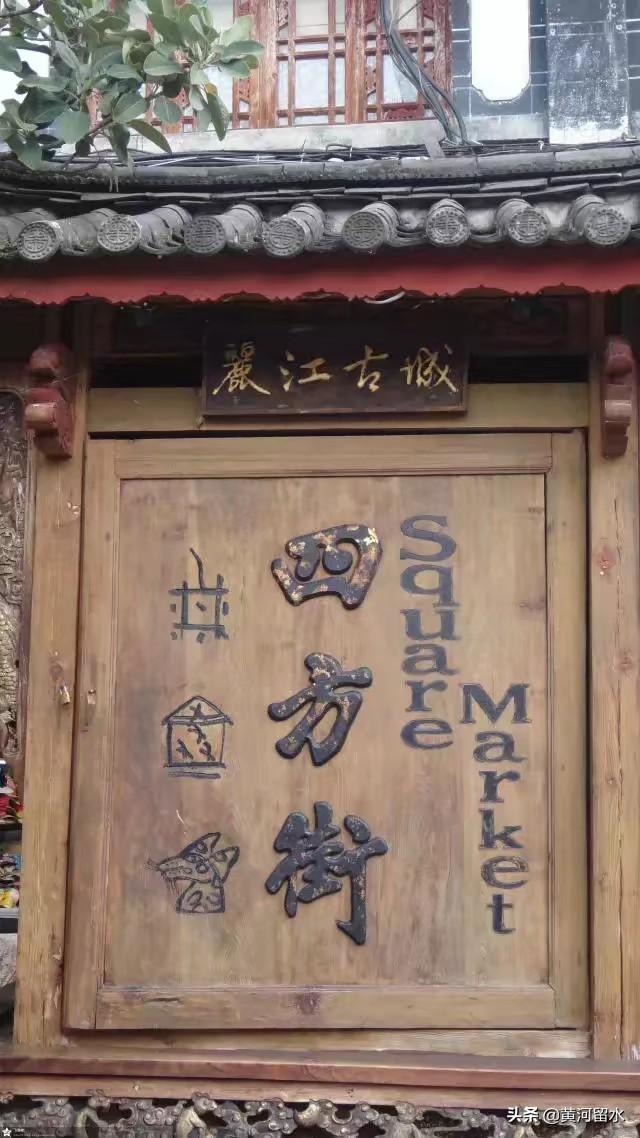 麗江古城
四方街
Square
Market
头条 @黄河留水